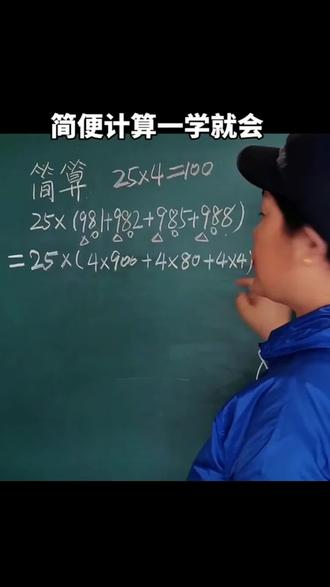 简便计算一学就会
简算 25×4=100
25×(981+982+985+988)
=25×(4×900+4×80+4×4)